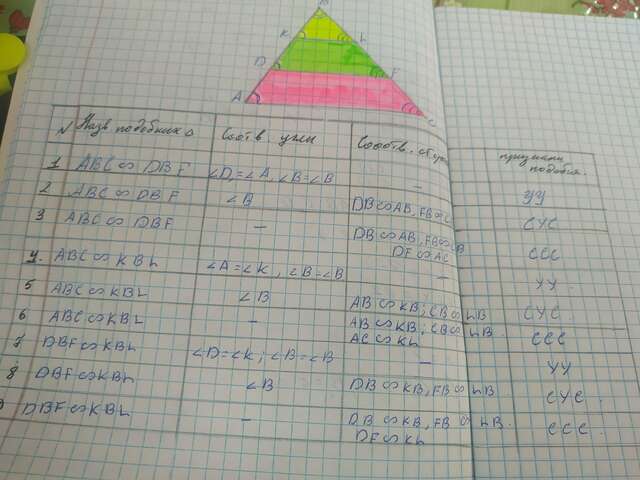 B
K L
D F
A C
N Назв подобных Δ Соотв. углы Соотв. ст признаки подобия.
1 ABC ∽ DBF ∠D=∠A, ∠B=∠B — УУ
2 ABC ∽ DBF ∠B DB∽AB, FB∽C СУС
3 ABC ∽ DBF — DB∽AB, FB∽CB
DF∽AC ССС
4. ABC∽KBL ∠A=∠K, ∠B=∠B — УУ
5 ABC∽KBL ∠B AB∽KB; CB∽LB СУС.
6 ABC∽KBL — AB∽KB; CB∽LB.
AC∽KL ССС
7 DBF∽KBL ∠D=∠K; ∠B=∠B — УУ
8 DBF∽KBL ∠B DB∽KB, FB∽LB СУС.
DBF∽KBL — DB∽KB, FB∽LB.
DF∽KL ССС.